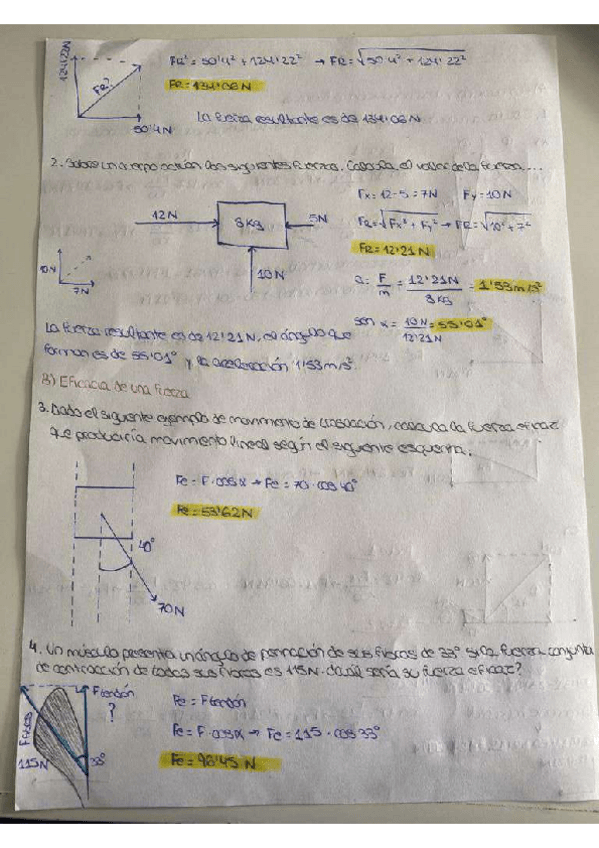 124'22N
FR?
50'4N
FR² = 50'4² + 124'22² → FR = √50'4² + 124'22²
FR = 134'06 N
La fuerza resultante es de 134'06 N
2. Sobre un cuerpo actúan las siguientes fuerzas. Calcula, el valor de la fuerza....
12N
8Kg
5N
10N
10N
7N
Fx = 12-5 = 7N Fy = 10N
FR = √Fx² + Fy² → FR = √10² + 7²
FR = 12'21 N
a = F/m = 12'21N/8Kg = 1'53m/s²
sen α = 10N/12'21N = 55'01°
La fuerza resultante es de 12'21 N, el ángulo que
forman es de 55'01° y la aceleración 1'53m/s².
B) Eficacia de una fuerza
3. Dado el siguiente ejemplo de movimiento de traslación, calcula la fuerza eficaz
que produciría movimiento lineal según el siguiente esquema.
40°
70N
Fe = F · cos α → Fe = 70 · cos 40°
Fe = 53'62 N
4. Un músculo presenta un ángulo de pennación de sus fibras de 33°. Si la fuerza conjunta
de contracción de todas sus fibras es 115N. ¿Cuál sería su fuerza eficaz?
F fibras
115N
F tendón
?
33°
Fe = F tendón
Fe = F · cos α → Fe = 115 · cos 33°
Fe = 96'45 N